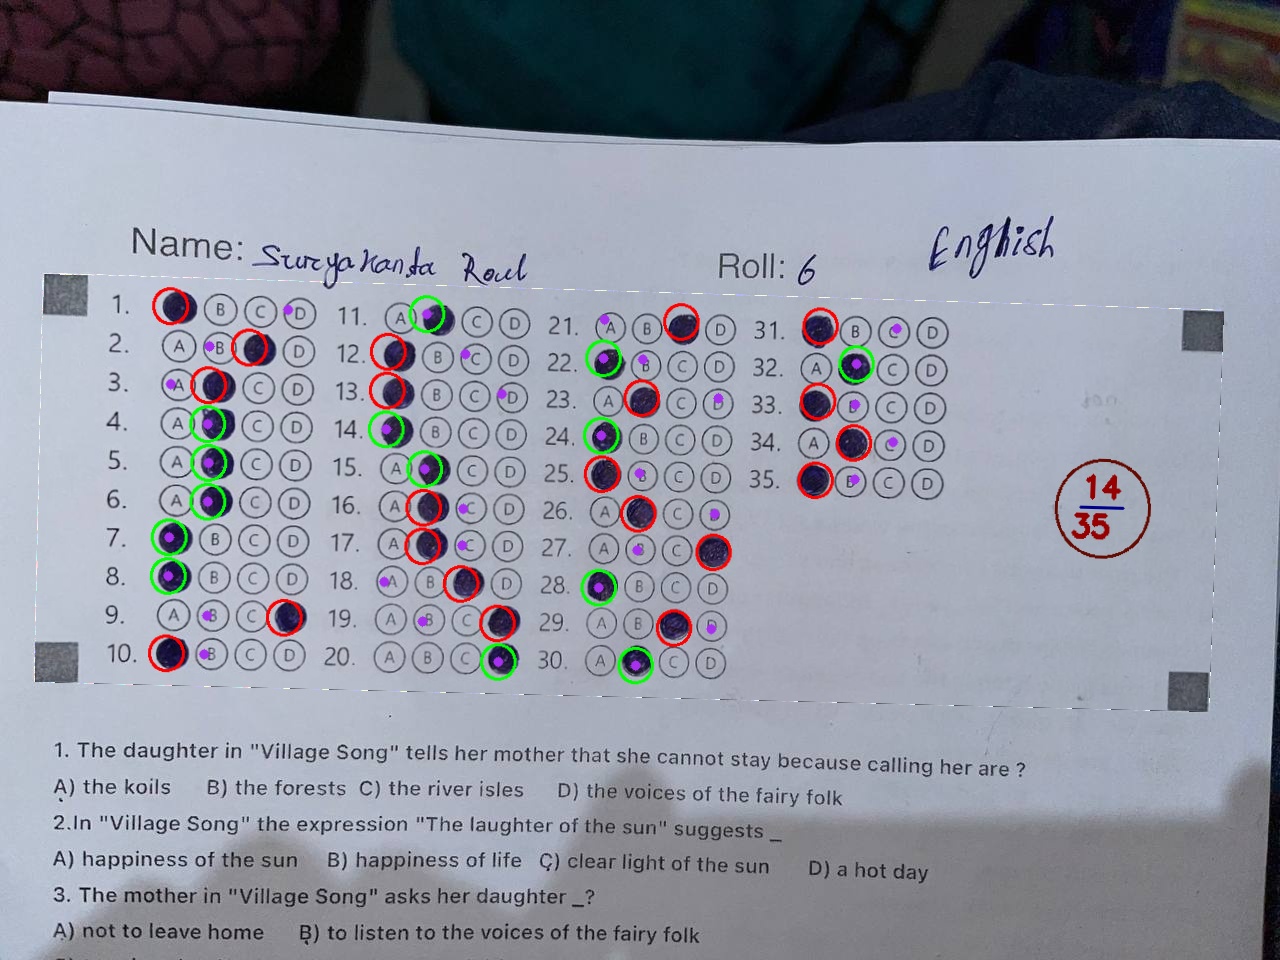 Name: Suryakanta Roul
Roll: 6
English
1. B C D
2. A B D
3. A C D
4. A C D
5. A C D
6. A C D
7. B C D
8. B C D
9. A B C
10. B C D
11. A C D
12. B C D
13. B C D
14. B C D
15. A C D
16. A C D
17. A C D
18. A B D
19. A B C
20. A B C
21. A B D
22. B C D
23. A C D
24. B C D
25. B C D
26. A C D
27. A B C
28. B C D
29. A B D
30. A C D
31. B C D
32. A C D
33. B C D
34. A C D
35. B C D
14
35
1. The daughter in "Village Song" tells her mother that she cannot stay because calling her are ?
A) the koils B) the forests C) the river isles D) the voices of the fairy folk
2.In "Village Song" the expression "The laughter of the sun" suggests _
A) happiness of the sun B) happiness of life C) clear light of the sun D) a hot day
3. The mother in "Village Song" asks her daughter _?
A) not to leave home B) to listen to the voices of the fairy folk